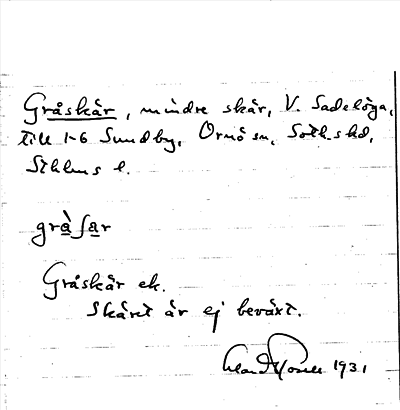 Gråskär, mindre skär, V. Sadelöga,
till 1-6 Sundby, Ornö sn, Soth. skd,
Sthlms l.
grà̱ſa̱r
Gråskär ek.
Skäret är ej beväxt.
1931